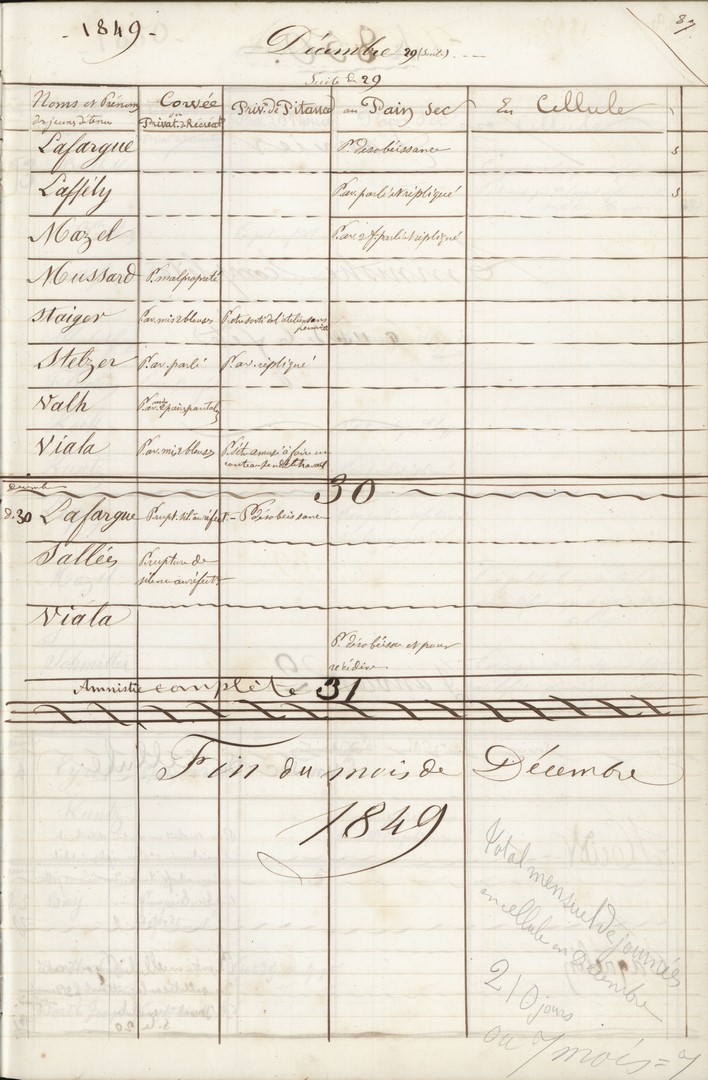 - 1849 - Décembre 29 (Suite) 87
Suite le 29
Noms et Prénoms Corvée Priv. de Pitance au Pain sec En Cellule
des jeunes détenus ou Privat. de Récréat.
Lafargue P. désobéissance s
Laffély P. av. parlé et répliqué s
Mazel P. av. parlé et répliqué
Mussard P. malpropreté
Staiger P. av. mis 2 blouses P. être sorti de l'atelier sans
permis
Stelzer P. av. parlé P. av. répliqué
Valh P. av. mis 2 pairs pantal.
Viala P. av. mis 2 blouses P. s'être amusé à faire un
couteau pendt le travail
30
décemb.
d. 30 Lafargue P. rupt. sil. au réfect. - P. désobéissance
Sallées P. rupture de
silence au réfect.
Viala
P. désobéisse et pour
récidive
Amnistie complète 31
Fin du mois de Décembre
1849
Total mensuel de journées
en cellule en Décembre
210 jours
ou 7 mois = 7